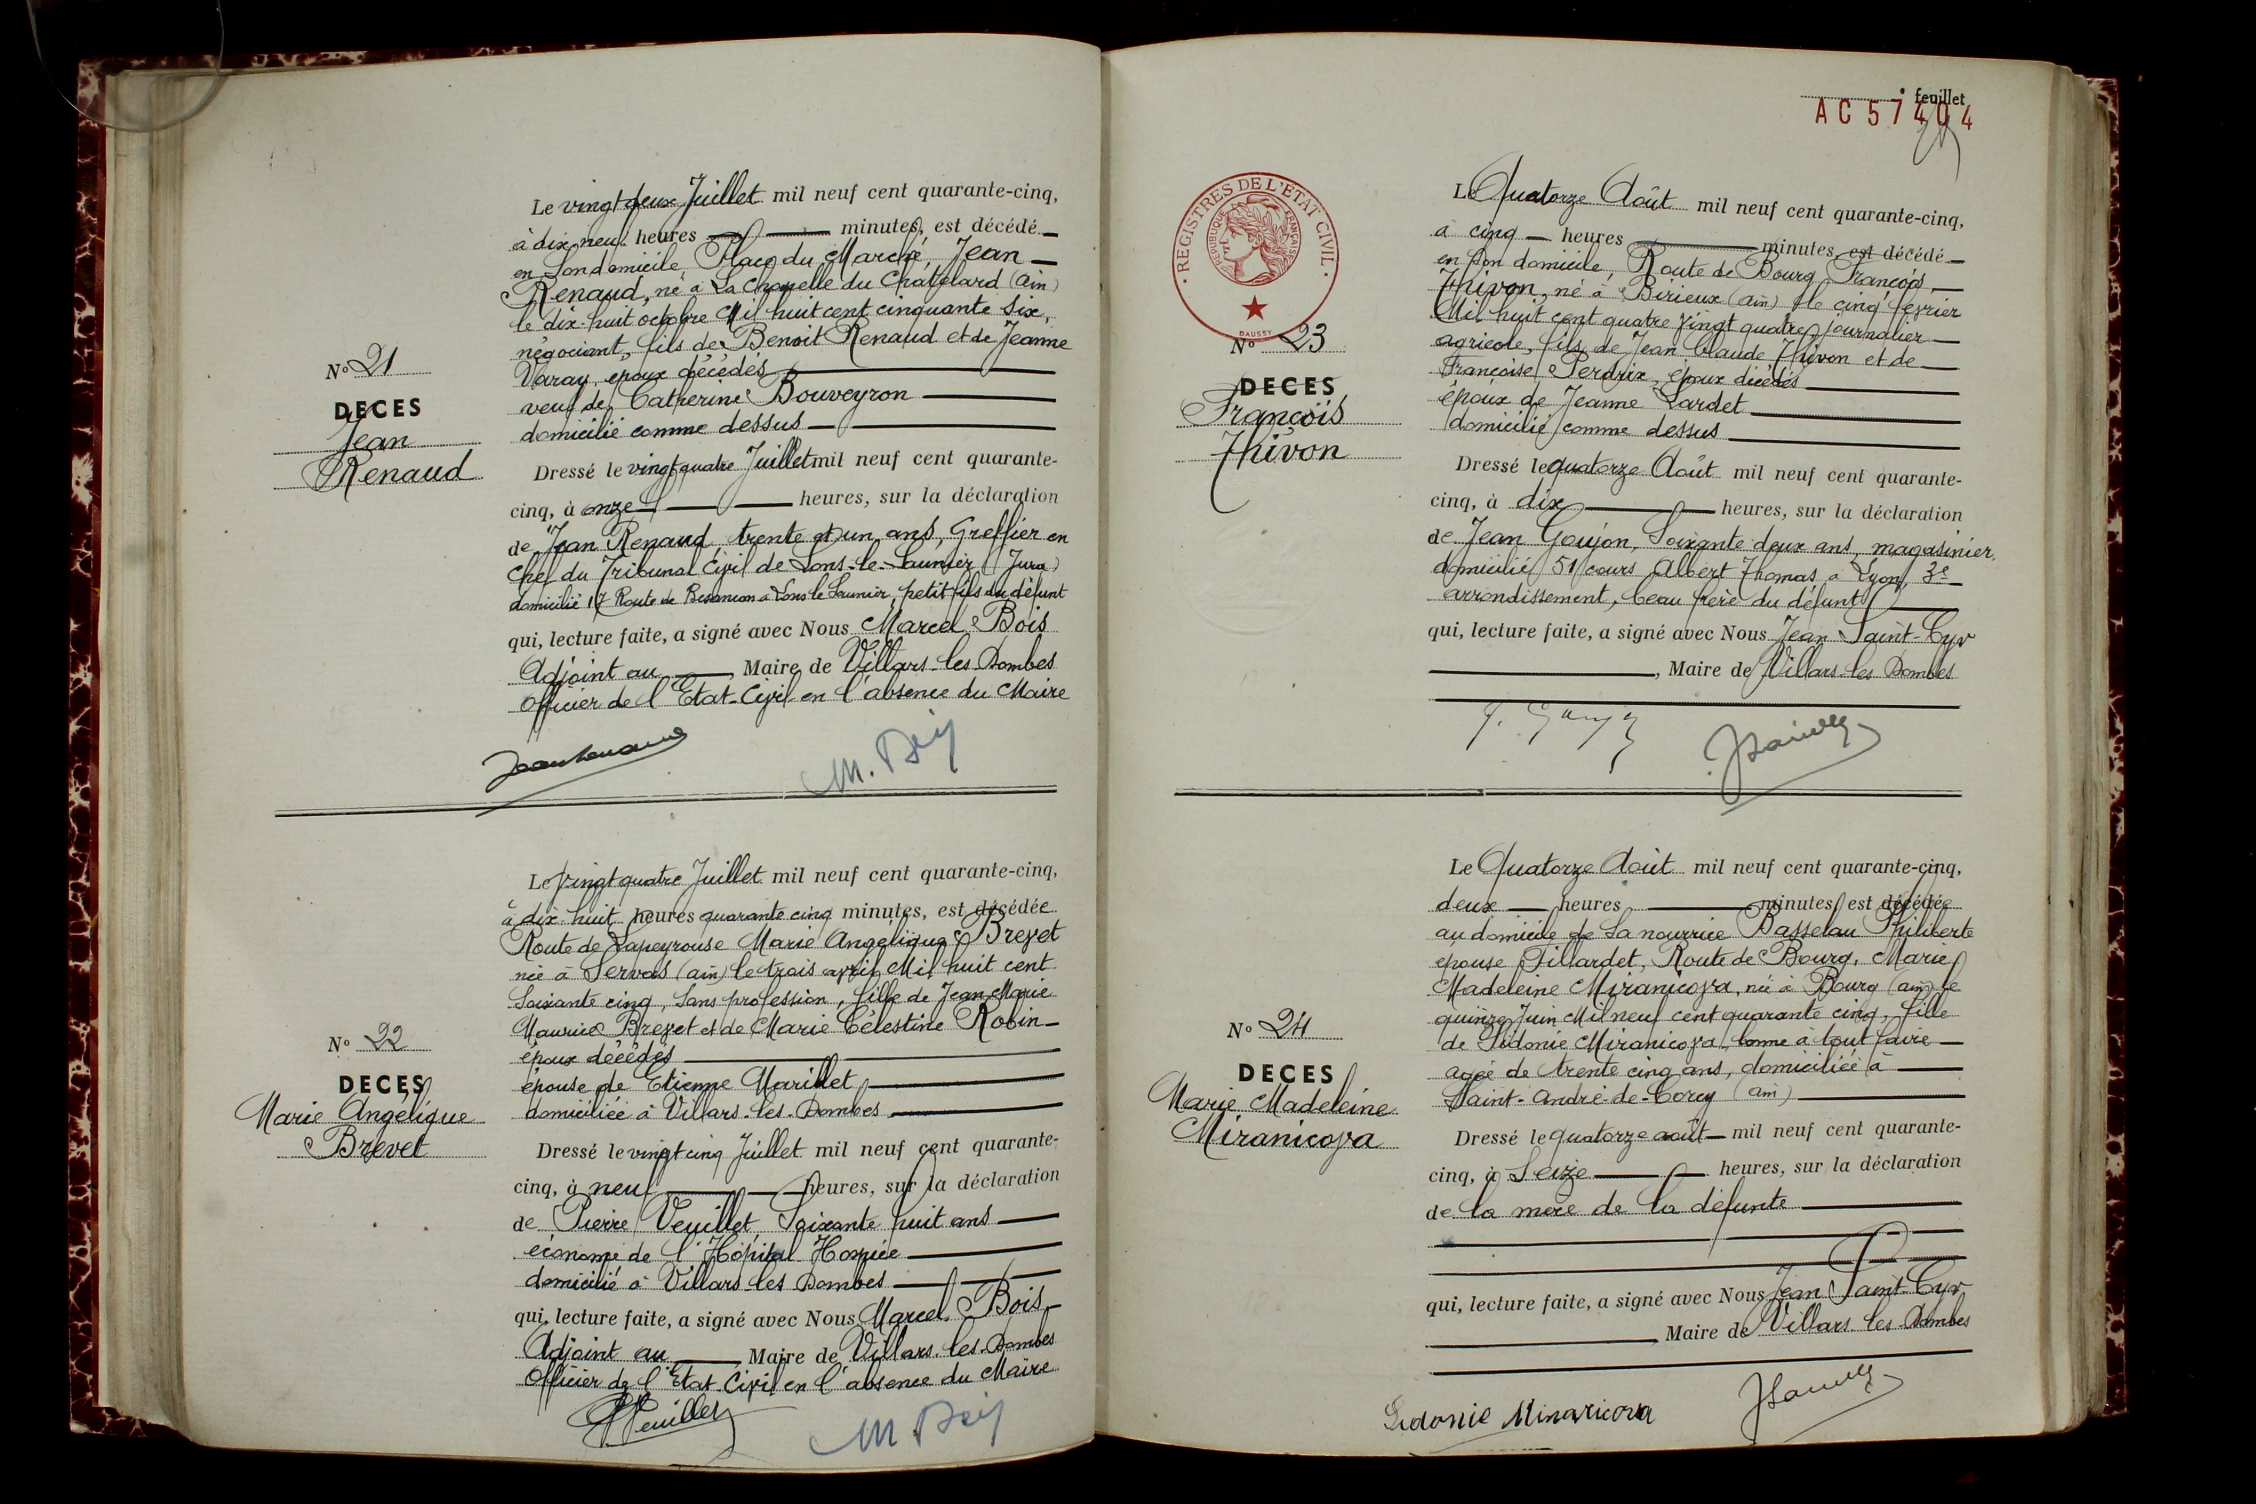 Le vingt deux Juillet mil neuf cent quarante-cinq,
à dix neuf heures minutes, est décédé
en Son domicile, Place du Marché, Jean
Renaud, né à La Chapelle du Châtelard (ain)
le dix-huit octobre Mil huit cent cinquante six,
négociant, fils de Benoit Renaud et de Jeanne
Varay, époux décédés
veuf de Catherine Bouveyron
domicilié comme dessus
No 21
DECES
Jean
Renaud
Dressé le vingt quatre Juillet mil neuf cent quarante-
cinq, à onze heures, sur la déclaration
de Jean Renaud trente et un ans, Greffier en
Chef du Tribunal Civil de Lons-le-Saunier (Jura)
domicilié 17 Route de Besancon à Lons le Saunier, petit fils du défunt
qui, lecture faite, a signé avec Nous Marcel Bois
Adjoint au Maire de Villars-les-Dombes
Officier de l'Etat-Civil en l'absence du Maire
Le vingt quatre Juillet mil neuf cent quarante-cinq,
à dix-huit heures quarante cinq minutes, est décédée
Route de Lapeyrouse Marie Angélique Brevet
née à Servas (ain) le trois avril Mil huit cent
Soixante cinq, Sans profession, fille de Jean Marie
Maurice Brevet et de Marie Célestine Robin
époux décédés
épouse de Etienne Marillet
domiciliée à Villars-les-Dombes
No 22
DECES
Marie Angélique
Brevet
Dressé le vingt cinq Juillet mil neuf cent quarante-
cinq, à neuf heures, sur la déclaration
de Pierre Veuillet, Soixante huit ans
économe de l'Hôpital Hospice
domicilié à Villars-les-Dombes
qui, lecture faite, a signé avec Nous Marcel Bois
Adjoint au Maire de Villars-les-Dombes
Officier de l'Etat-Civil en l'absence du Maire
P Veuillet
feuillet
AC 57404
REGISTRES DE L'ETAT CIVIL
REPUBLIQUE FRANÇAISE
DAUSSY
Le Quatorze Août mil neuf cent quarante-cinq,
à cinq heures minutes, est décédé
en Son domicile, Route de Bourg François
Thivon, né à Birieux (ain) le cinq février
Mil huit cent quatre vingt quatre, journalier
agricole, fils de Jean Claude Thivon et de
Françoise Perdrix, époux décédés
époux de Jeanne Lardet
domicilié comme dessus
No 23
DECES
François
Thivon
Dressé le quatorze Août mil neuf cent quarante-
cinq, à dix heures, sur la déclaration
de Jean Goujon, Soixante-deux ans, magasinier,
domicilié 51 cours Albert Thomas à Lyon 3e
arrondissement, beau frère du défunt
qui, lecture faite, a signé avec Nous Jean Saint-Cyr
, Maire de Villars-les-Dombes
Le Quatorze Août mil neuf cent quarante-cinq,
deux heures minutes, est décédée
au domicile de Sa nourrice Basselau Philiberte
épouse Tillardet, Route de Bourg, Marie
Madeleine Miranicova, née à Bourg (ain) le
quinze Juin Mil neuf cent quarante cinq, fille
de Sidonie Miranicova, bonne à tout faire
agée de trente cinq ans, domiciliée à
Saint-André-de-Corcy (ain)
No 24
DECES
Marie Madeleine
Miranicova
Dressé le quatorze août mil neuf cent quarante-
cinq, à Seize heures, sur la déclaration
de la mère de la défunte
qui, lecture faite, a signé avec Nous Jean Saint-Cyr
Maire de Villars-les-Dombes
Sidonie Minaricova